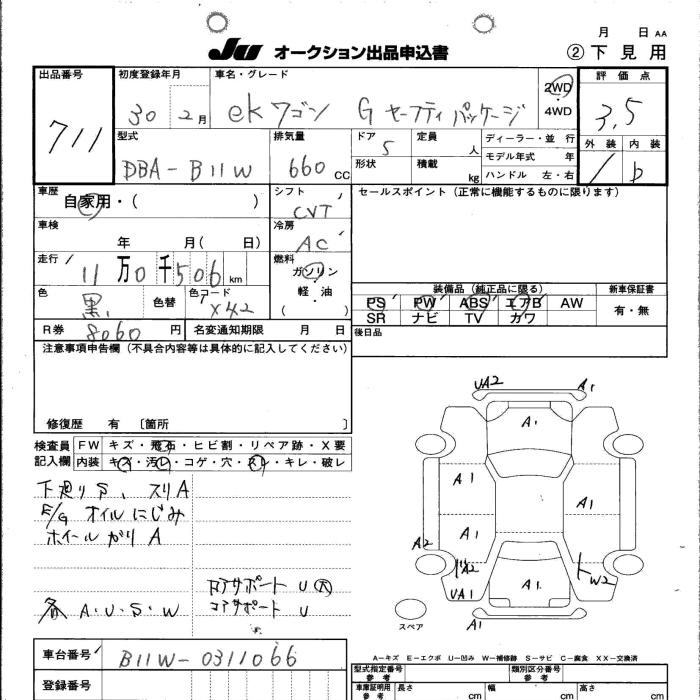 月 日 AA
JU オークション出品申込書 ②下見用
出品番号 初度登録年月 車名・グレード 評価点
711 30 2月 ekワゴン G セーフティパッケージ 2WD・4WD 3.5
型式 排気量 ドア 定員 ディーラー・並行 外装 内装
DBA-B11W 660cc 5 人 モデル年式 年
形状 積載 kg ハンドル 左・右 b
車歴 シフト セールスポイント（正常に機能するものに限ります）
自家用・（ ） CVT
車検 冷房
年 月（ 日） AC
走行 燃料
11万0千506km ガソリン・軽・油（ ）
色 色替 色コード 装備品（純正品に限る） 新車保証書
黒 X42 PS PW ABS エアB AW 有・無
SR ナビ TV カワ
R券 8060円 名変通知期限 月 日 後日品
注意事項申告欄（不具合内容等は具体的に記入してください）
修復歴 有 〔箇所 〕
検査員記入欄 FW キズ・飛石・ヒビ割・リペア跡・X要
内装 キズ・汚レ・コゲ・穴・スレ・キレ・破レ
下廻りS、スリA
E/G オイルにじみ
ホイールガリA
各A・U・S・W
コアサポート U
UA2 A1
A1
A1 A1
A2 A1
A2 W2
UA1 A1
A1
スペア
A－キズ E－エクボ U－凹み W－補修跡 S－サビ C－腐食 XX－交換済
車台番号 B11W-0311066
登録番号
型式指定番号 参考 類別区分番号 参考
車庫証明用 参考 長さ cm 幅 cm 高さ cm